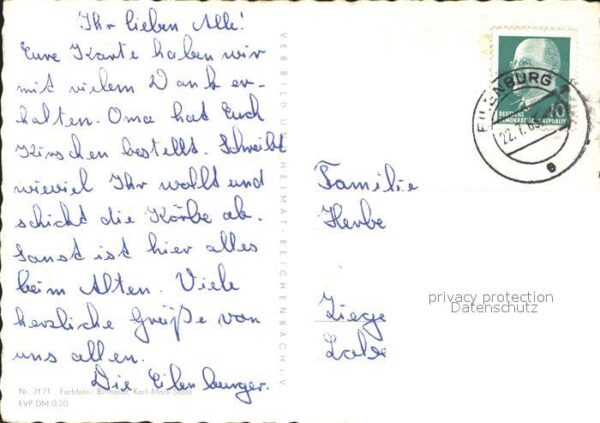 Ihr lieben Alle!
Eure Karte haben wir
mit vielem Dank er-
halten. Oma hat Euch
Kirschen bestellt. Schreibt
wieviel Ihr wollt und
schickt die Körbe ab.
Sonst ist hier alles
beim Alten. Viele
herzliche Grüße von
uns allen.
Die Eilenburger.
Nr. 3121 Farbfoto: Karl-Marx-Stadt
EVP DM 0,20
VEB BILD U. HEIMAT · REICHENBACH i. V.
DEUTSCHE
DEMOKRATISCHE REPUBLIK
10
EILENBURG 1
22.7.
e
Familie
Herbe
Ziege
privacy protection
Datenschutz